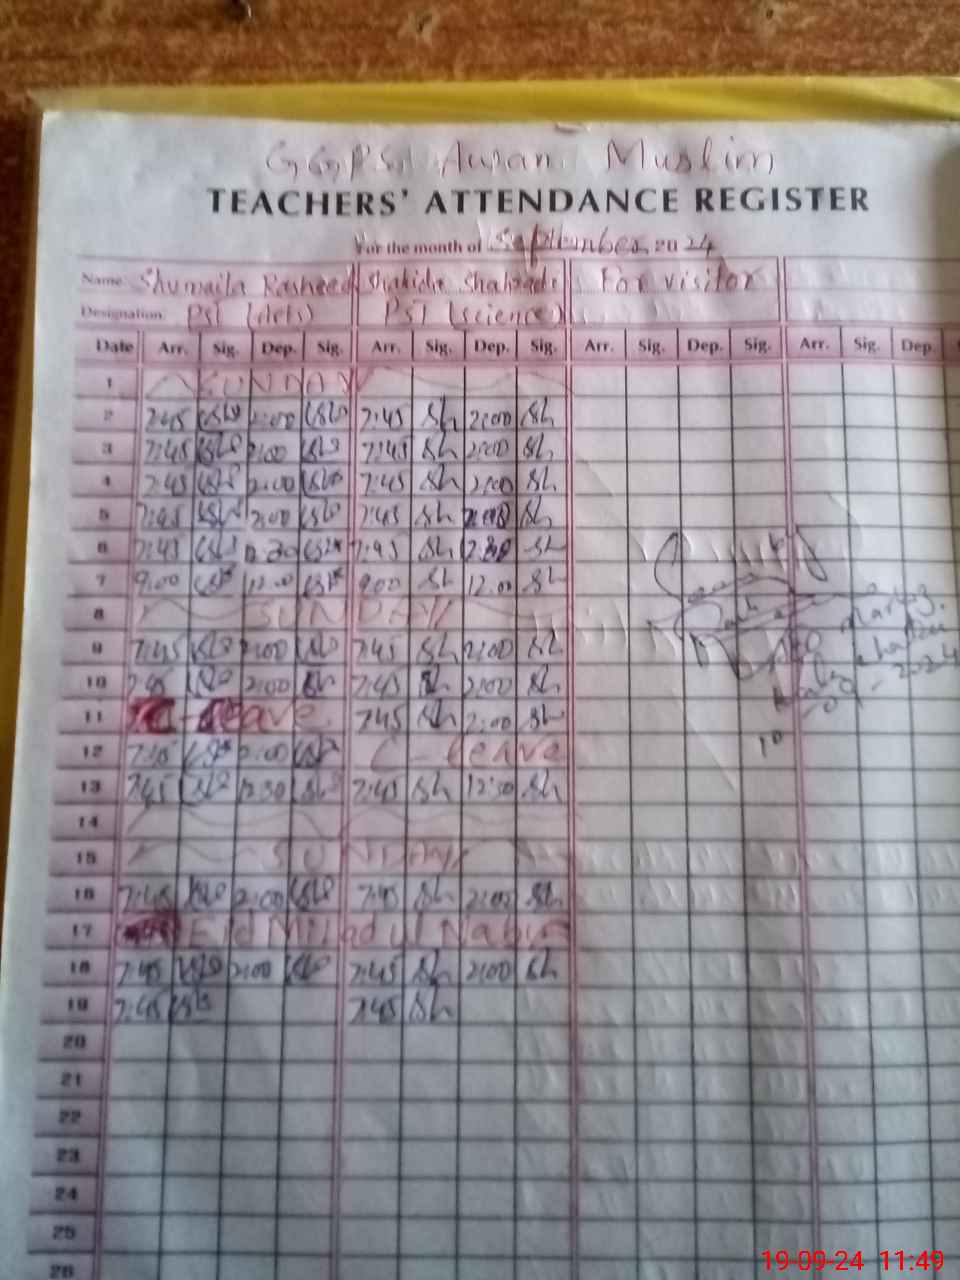 GGPS Awan Muslim
TEACHERS' ATTENDANCE REGISTER
For the month of September 2024
Name Shumaila Rasheed Shahida Shahzadi For visitor
Designation. PST (Arts) PST (science)
Date Arr. Sig. Dep. Sig. Arr. Sig. Dep. Sig. Arr. Sig. Dep. Sig. Arr. Sig. Dep.
1 SUNDAY
2 7:45 2:00 7:45 Sh 2:00 Sh
3 7:45 2:00 7:45 Sh 2:00 Sh
4 7:45 2:00 7:45 Sh 2:00 Sh
5 7:45 2:00 7:45 Sh 2:00 Sh
6 7:45 12:30 7:45 Sh Sh
7 9:00 12:00 9:00 Sh 12:00 Sh
8 SUNDAY
9 7:45 2:00 7:45 Sh 2:00 Sh
10 7:45 2:00 7:45 Sh 2:00 Sh
11 C-leave 7:45 Sh 2:00 Sh
12 7:45 2:00 C-leave
13 7:45 12:30 7:45 Sh 12:30 Sh
14
15 SUNDAY
16 7:45 2:00 7:45 Sh 2:00 Sh
17 Eid Milad ul Nabi
18 7:45 2:00 7:45 Sh 2:00 Sh
19 7:45 7:45 Sh
20
21
22
23
24
25
26
19-09-24 11:49